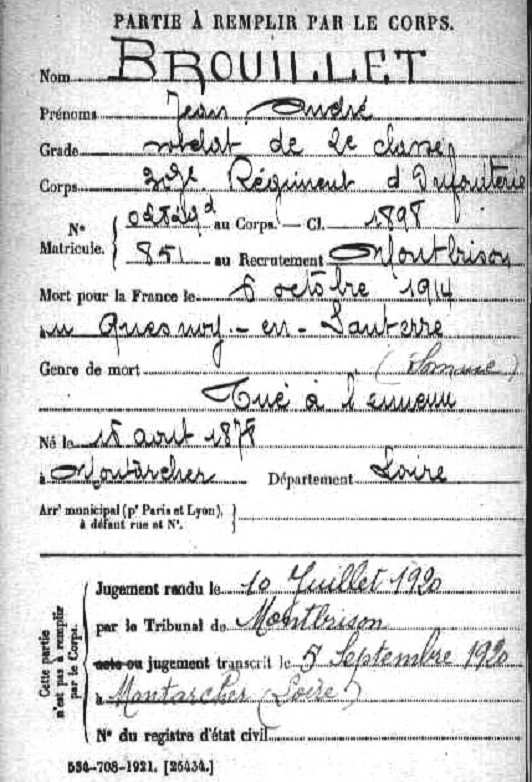 PARTIE À REMPLIR PAR LE CORPS.
Nom BROUILLET
Prénoms Jean André
Grade soldat de 2e classe
Corps Régiment d'Infanterie
N° Matricule. au Corps. — Cl. 1898
851 au Recrutement Montbrison
Mort pour la France le octobre 1914
au Quesnoy - en - Santerre
Genre de mort (Somme)
Tué à l'ennemi
Né le 15 août 1878
à Montarcher Département Loire
Arrt municipal (pr Paris et Lyon),
à défaut rue et N°.
Cette partie
n'est pas à remplir
par le Corps.
Jugement rendu le 10 Juillet 1920
par le Tribunal de Montbrison
acte ou jugement transcrit le 5 Septembre 1920
à Montarcher (Loire)
N° du registre d'état civil
534-708-1921. [26434.]